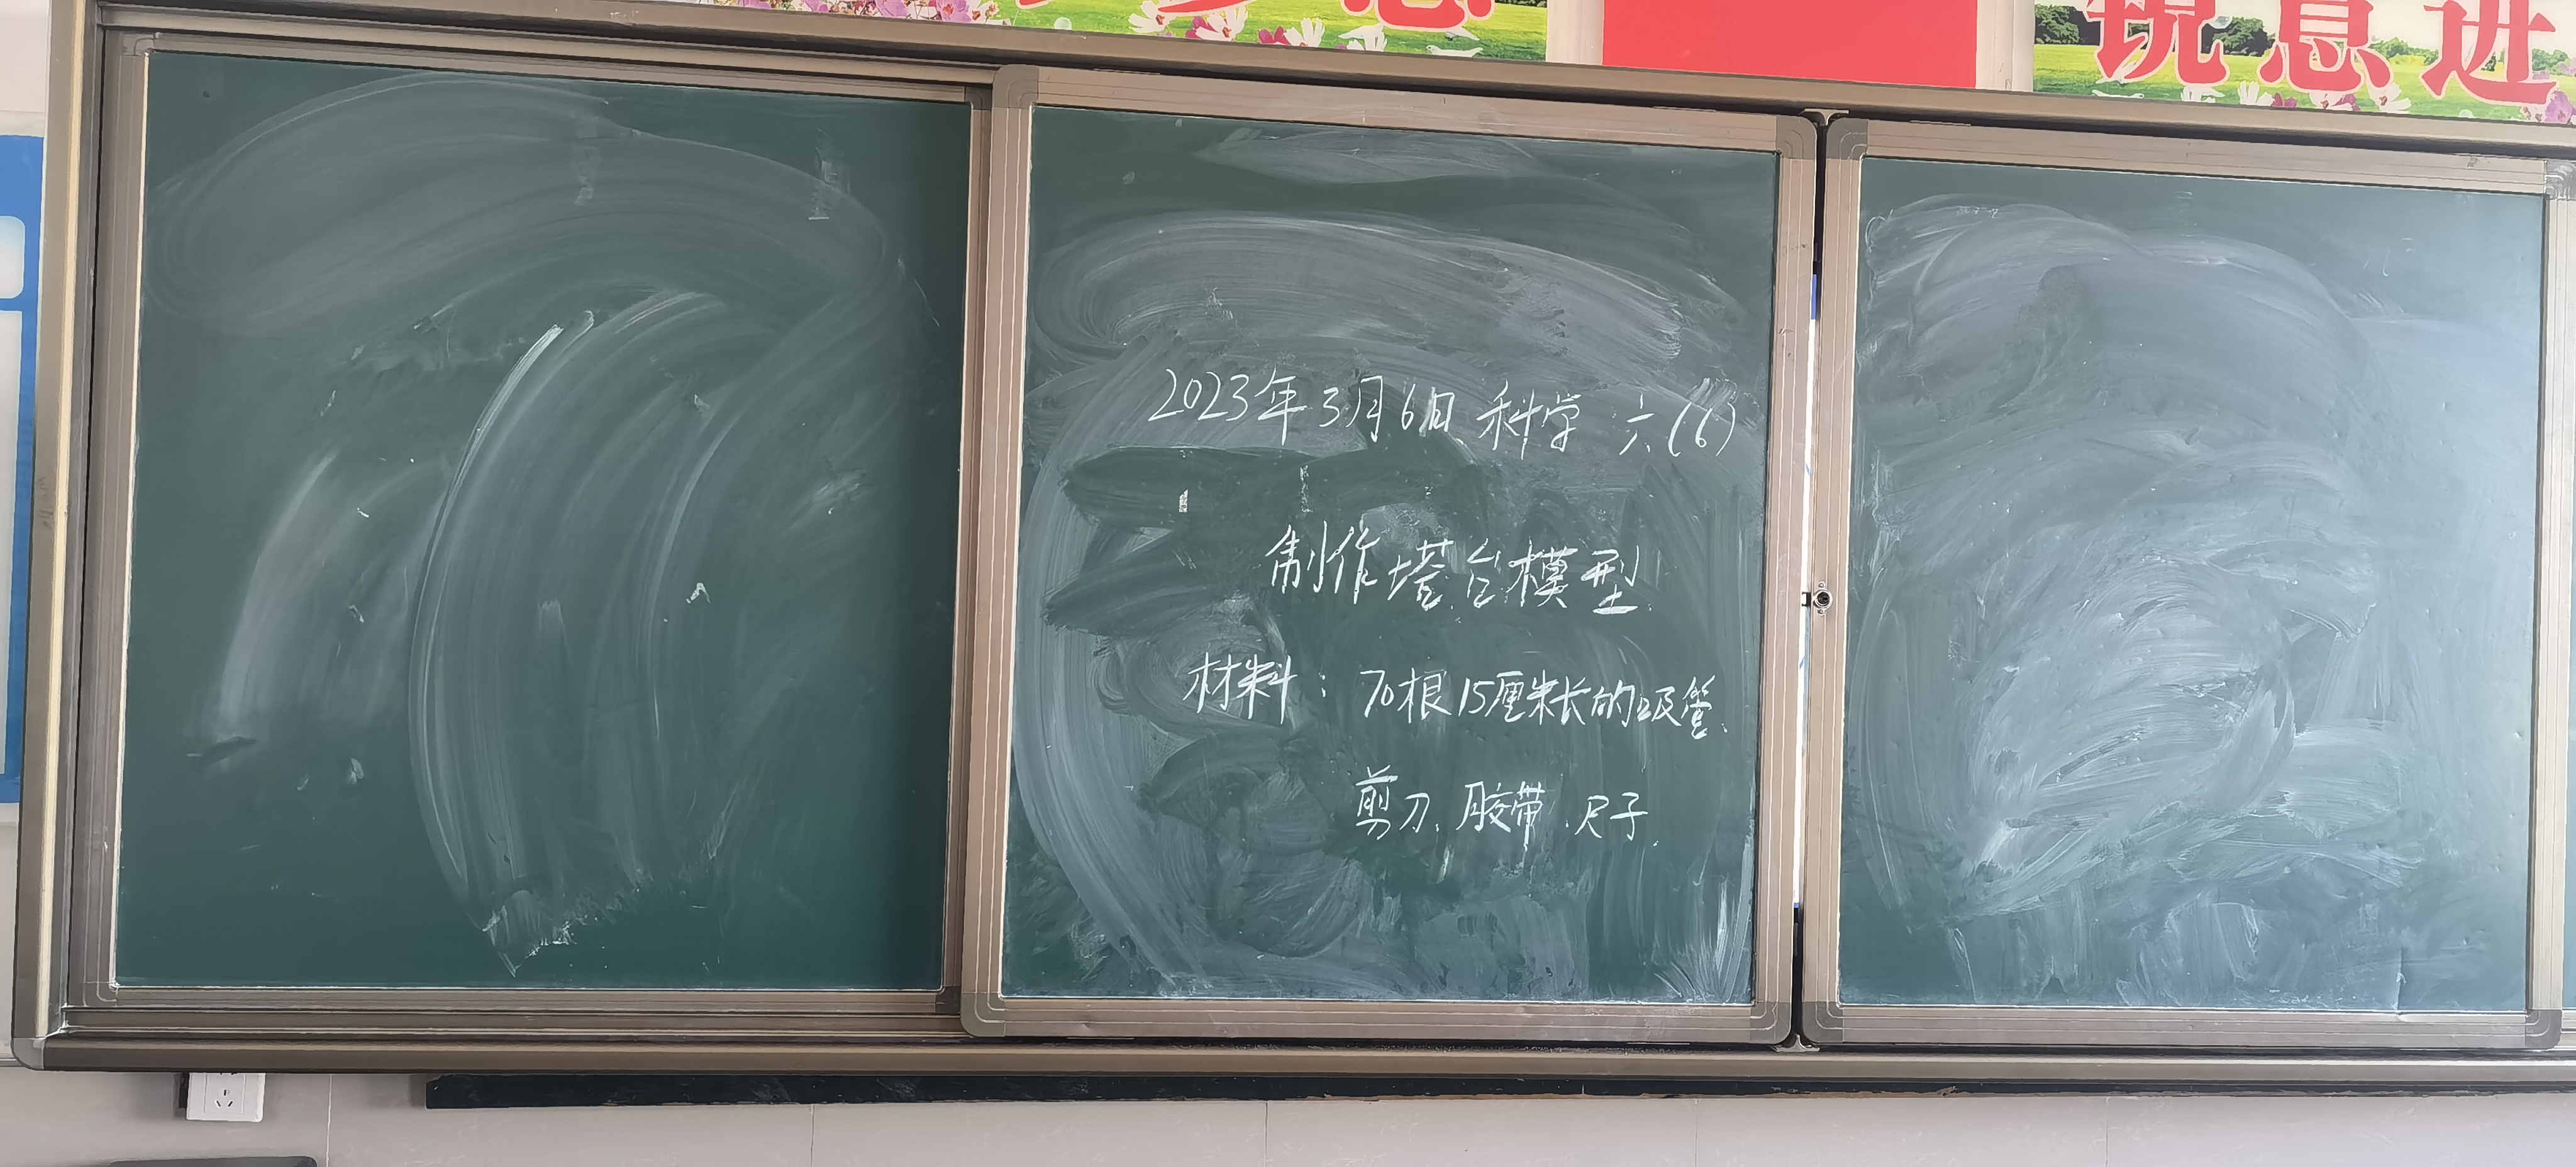 锐意进
2023年3月6日 科学 六(6)
制作塔台模型
材料：70根15厘米长的吸管、
剪刀、胶带、尺子.